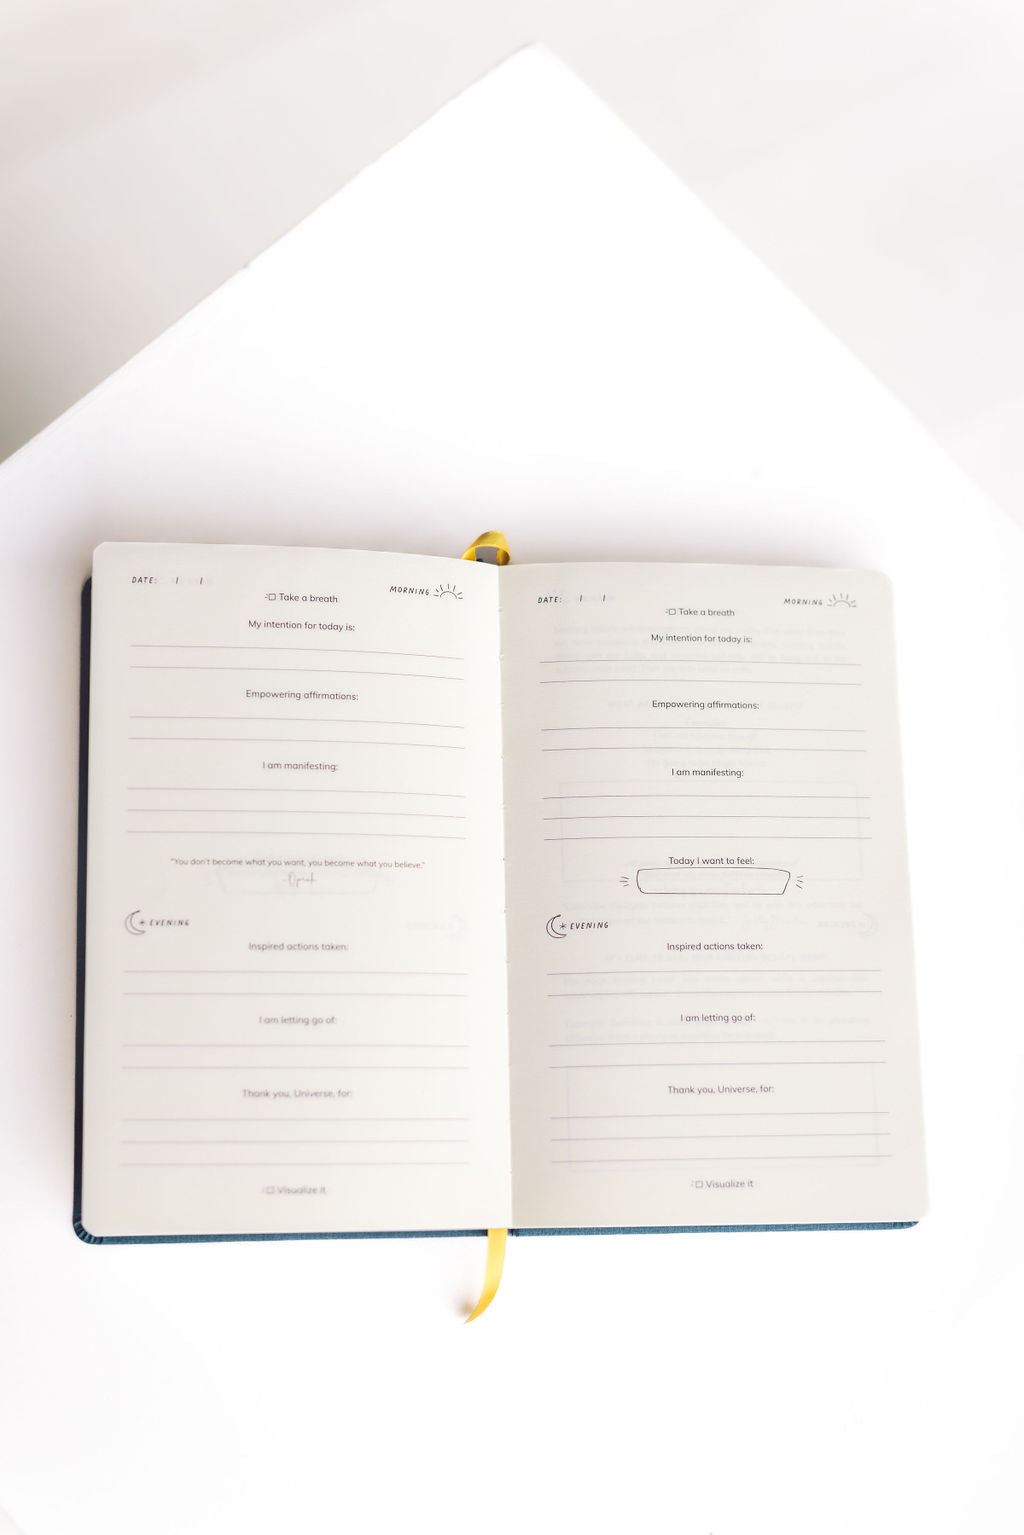 DATE: / /
MORNING
Take a breath
My intention for today is:
Empowering affirmations:
I am manifesting:
"You don't become what you want, you become what you believe."
-Oprah
EVENING
Inspired actions taken:
I am letting go of:
Thank you, Universe, for:
Visualize it
DATE: / /
MORNING
Take a breath
My intention for today is:
Empowering affirmations:
I am manifesting:
Today I want to feel:
EVENING
Inspired actions taken:
I am letting go of:
Thank you, Universe, for:
Visualize it